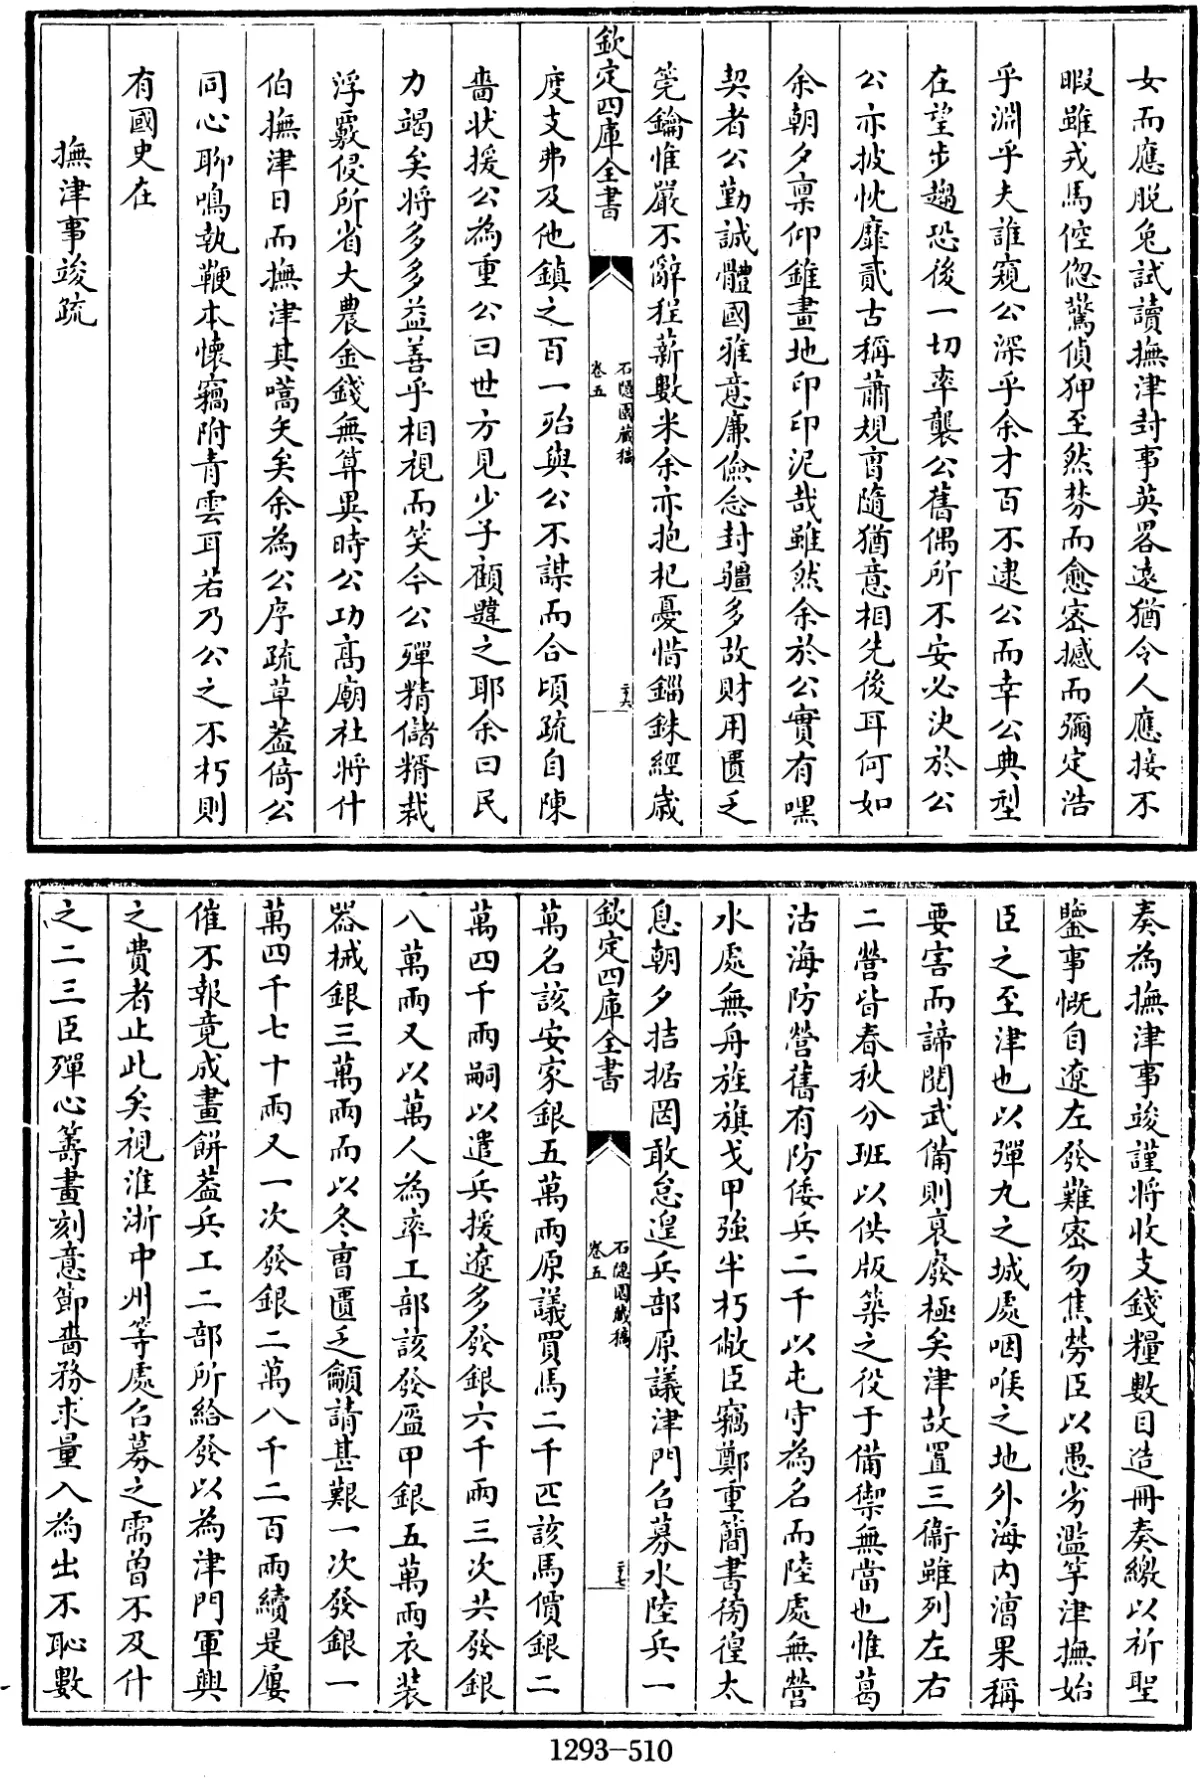 女而應脫兔試讀撫津封事英畧遠猶令人應接不
暇雖戎馬倥傯驚偵狎至然棼而愈密撼而彌定浩
乎淵乎夫誰窺公深乎余才百不逮公而幸公典型
在望步趨恐後一切率襲公舊偶所不安必決於公
公亦披忱靡貳古稱蕭規曺隨猶意相先後耳何如
余朝夕稟仰錐畫地印印泥哉雖然余於公實有嘿
契者公勤誠體國雅意廉儉念封疆多故財用匱乏
筦鑰惟嚴不辭程薪數米余亦抱杞憂惜錙銖經嵗
欽定四庫全書
石隱園藏稿
卷五
二十六
度支弗及他鎮之百一殆與公不謀而合頃疏自陳
嗇状援公為重公曰世方見少子顧韙之耶余曰民
力竭矣将多多益善乎相視而笑今公殫精儲糈裁
浮覈侵所省大農金錢無算異時公功高廟社将什
伯撫津日而撫津其嚆矢矣余為公序疏草葢倚公
同心聊鳴執鞭本懐竊附青雲耳若乃公之不朽則
有國史在
撫津事竣疏
奏為撫津事竣謹将收支錢糧數目造冊奏繳以祈聖
鑒事慨自遼左發難宻勿焦勞臣以愚劣濫竽津撫始
臣之至津也以彈丸之城處咽喉之地外海内漕果稱
要害而諦閱武備則哀廢極矣津故置三衞雖列左右
二營皆春秋分班以供版築之役于備禦無當也惟葛
沽海防營舊有防倭兵二千以屯守為名而陸處無營
水處無舟旌旗戈甲強半朽敝臣竊鄭重簡書徬徨太
息朝夕拮据罔敢怠遑兵部原議津門召募水陸兵一
欽定四庫全書
石隱園藏稿
卷五
二十七
萬名該安家銀五萬兩原議買馬二千匹該馬價銀二
萬四千兩嗣以遣兵援遼多發銀六千兩三次共發銀
八萬兩又以萬人為率工部該發盔甲銀五萬兩衣装
器械銀三萬兩而以冬曺匱乏籲請甚艱一次發銀一
萬四千七十兩又一次發銀二萬八千二百兩續是屢
催不報竟成畫餅葢兵工二部所給發以為津門軍興
之費者止此矣視淮浙中州等處召募之需曾不及什
之二三臣殫心籌畫刻意節嗇務求量入為出不恥數
1293-510